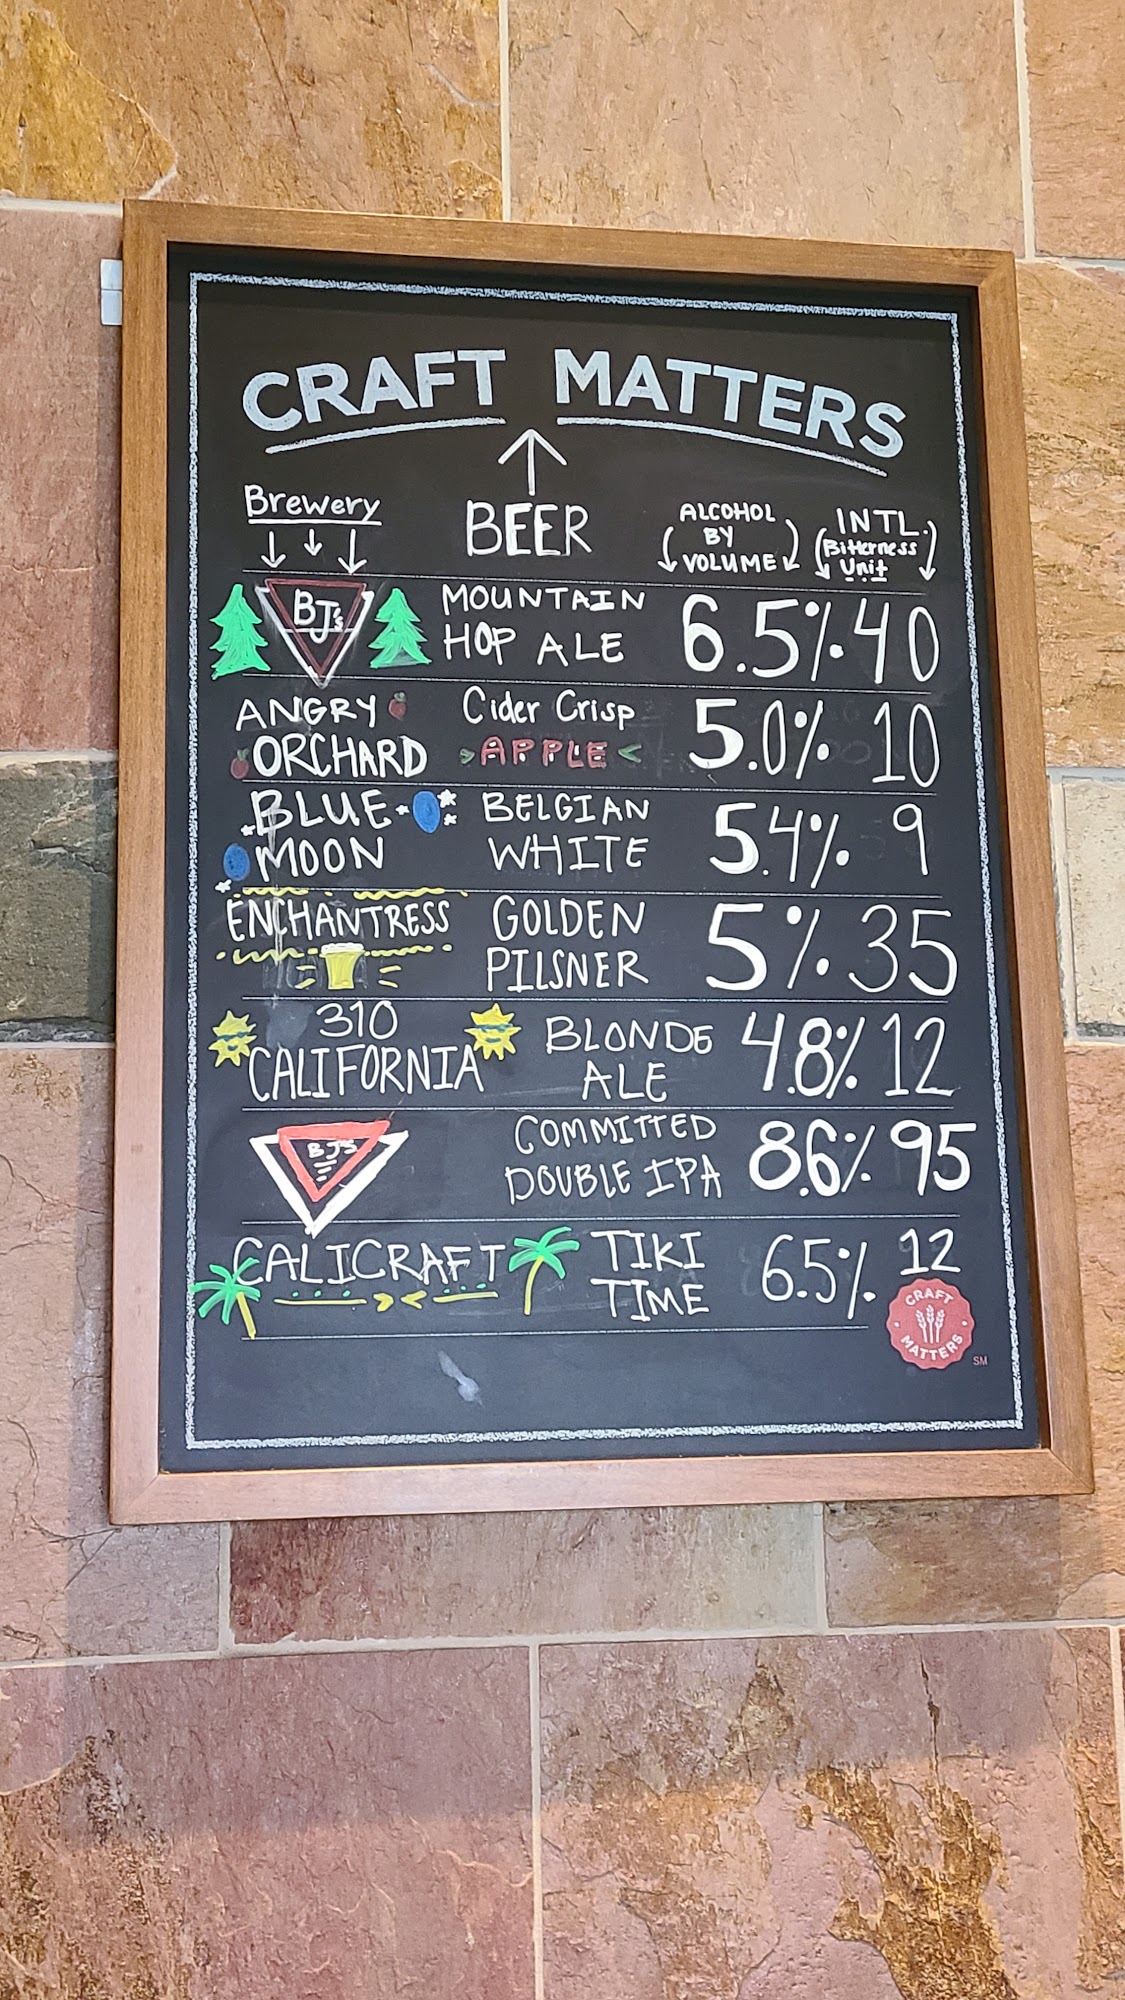 CRAFT MATTERS
Brewery
BEER
ALCOHOL
BY
VOLUME
INTL.
Bitterness
Unit
BJ's
MOUNTAIN
HOP ALE
6.5% 40
ANGRY
ORCHARD
Cider Crisp
APPLE
5.0% 10
BLUE
MOON
BELGIAN
WHITE
5.4% 9
ENCHANTRESS
GOLDEN
PILSNER
5% 35
310
CALIFORNIA
BLONDE
ALE
4.8% 12
BJ'S
COMMITTED
DOUBLE IPA
8.6% 95
CALICRAFT
TIKI
TIME
6.5% 12
CRAFT
MATTERS
SM